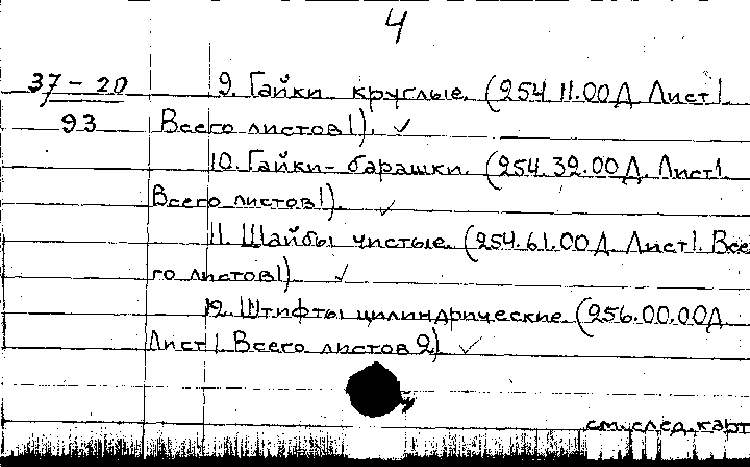 4
37-20 9. Гайки круглые. (254.11.00Д Лист 1.
93 Всего листов 1). ✓
10. Гайки-барашки. (254.32.00Д. Лист 1.
Всего листов 1). ✓
11. Шайбы чистые. (254.61.00Д Лист 1. Все
го листов 1) ✓
12. Штифты цилиндрические. (256.00.00Д
Лист 1. Всего листов 2) ✓
см. след. карт